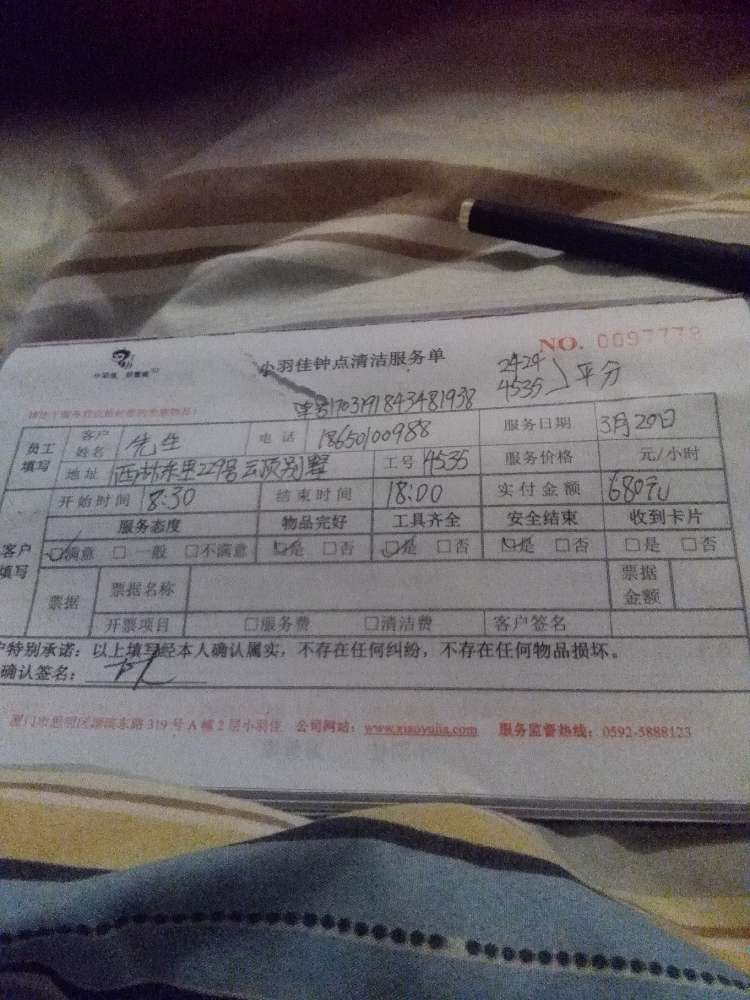 NO. 0097779
小羽佳钟点清洁服务单
2424
4535 平分
单号1703191843481938
员工填写 客户姓名 先生 电话 18650100988 服务日期 3月20日
地址 西湖东里229号云顶别墅 工号 4535 服务价格 元/小时
开始时间 8:30 结束时间 18:00 实付金额 680元
客户填写 服务态度 物品完好 工具齐全 安全结束 收到卡片
☑满意 □一般 □不满意 ☑是 □否 ☑是 □否 ☑是 □否 □是 □否
票据 票据名称 票据金额
开票项目 □服务费 □清洁费 客户签名
户特别承诺：以上填写经本人确认属实，不存在任何纠纷，不存在任何物品损坏。
确认签名：
厦门市思明区湖滨东路319号A幢2层小羽佳 公司网站：www.xiaoyujia.com 服务监督热线：0592-5888123